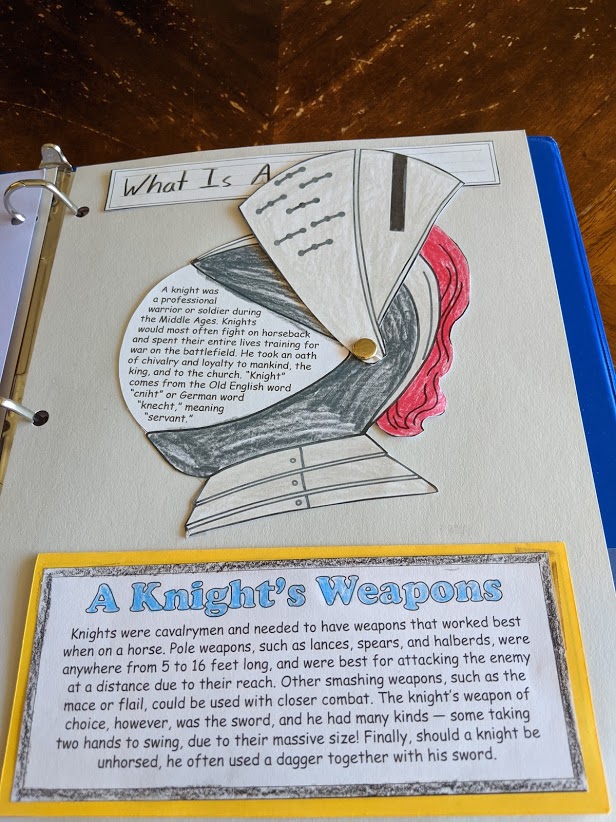 What Is A
A knight was
a professional
warrior or soldier during
the Middle Ages. Knights
would most often fight on horseback
and spent their entire lives training for
war on the battlefield. He took an oath
of chivalry and loyalty to mankind, the
king, and to the church. "Knight"
comes from the Old English word
"cniht" or German word
"knecht," meaning
"servant."
A Knight's Weapons
Knights were cavalrymen and needed to have weapons that worked best
when on a horse. Pole weapons, such as lances, spears, and halberds, were
anywhere from 5 to 16 feet long, and were best for attacking the enemy
at a distance due to their reach. Other smashing weapons, such as the
mace or flail, could be used with closer combat. The knight's weapon of
choice, however, was the sword, and he had many kinds — some taking
two hands to swing, due to their massive size! Finally, should a knight be
unhorsed, he often used a dagger together with his sword.